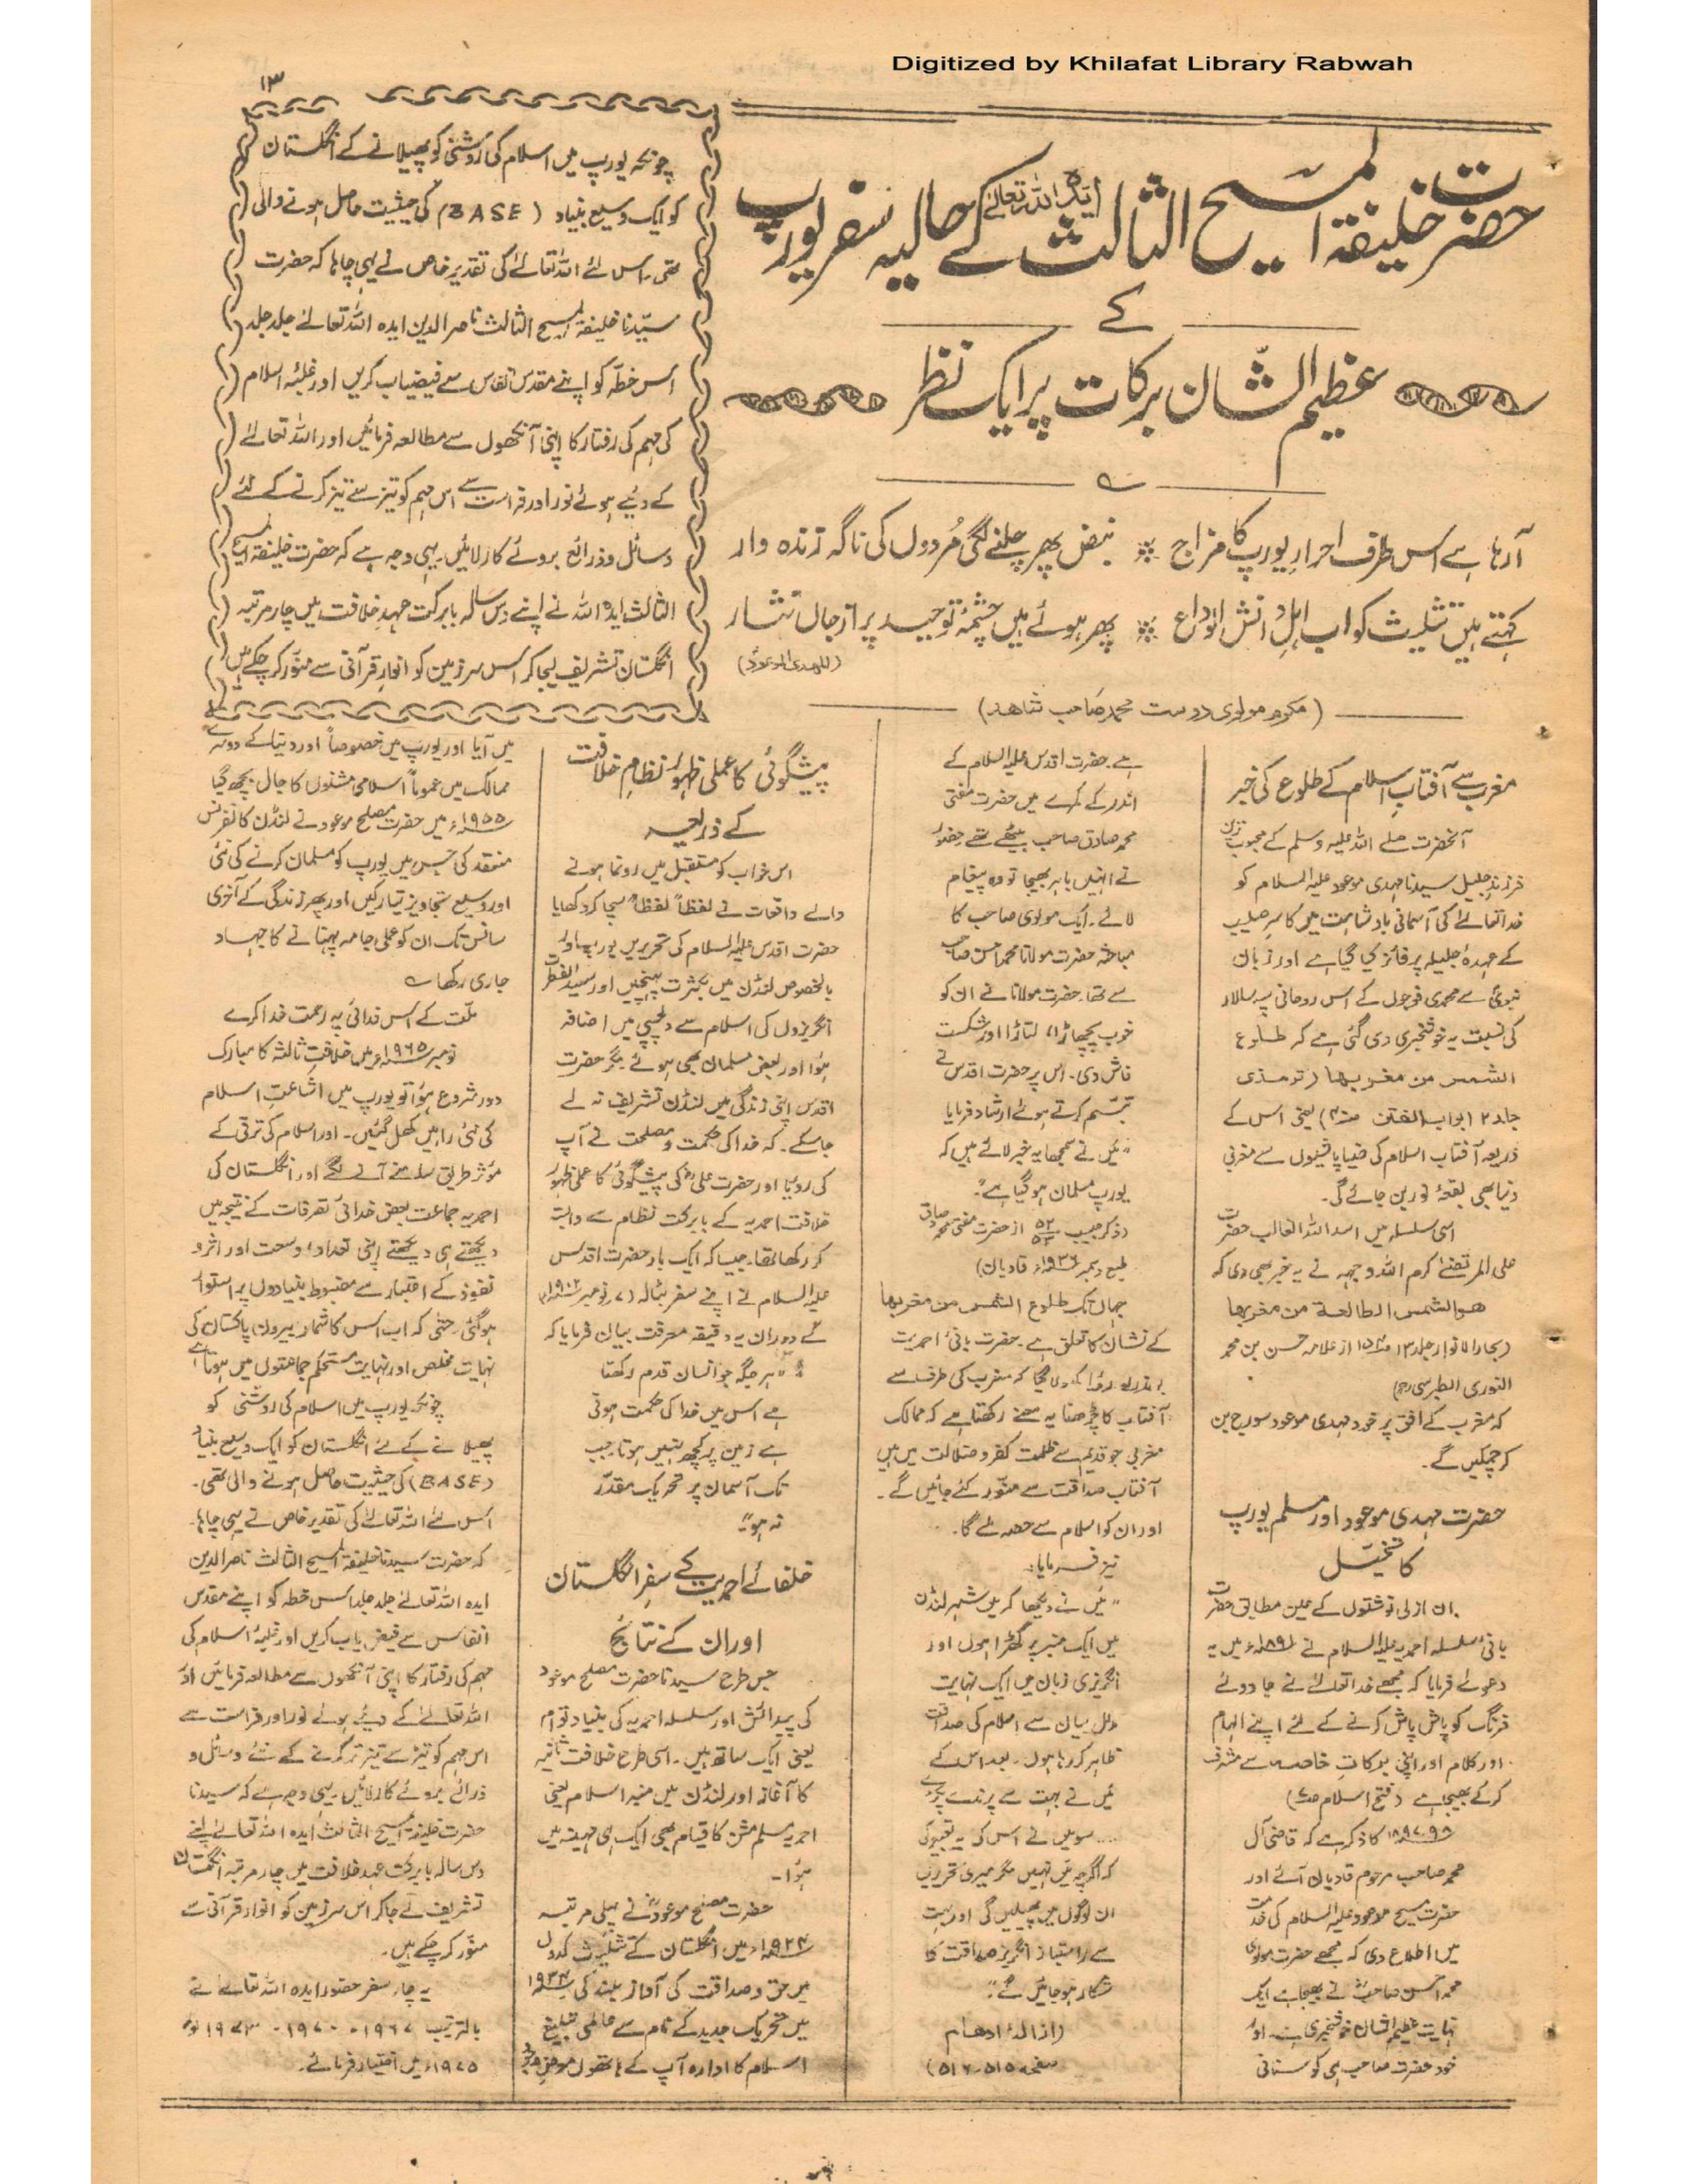 Digitized by Khilafat Library Rabwah
۱۳
حضرت خلیفۃ المسیح الثالث ایدہ اللہ تعالیٰ کے حالیہ سفر یورپ
کے
عظیم الشّان برکات پر ایک نظر
آرہا ہے اس طرف احرارِ یورپ کا مزاج ٭ نبض پھر چلنے لگی مُردوں کی ناگہ زندہ وار
کہتے ہیں تثلیث کو اب اہلِ دانش الوداع ٭ پھر ہوئے ہیں چشمۂ توحید پر از جاں نثار
(المہدی الموعودؑ)
(مکرم مولوی دوست محمد صاحب شاہد)
چونکہ یورپ میں اسلام کی روشنی کو پھیلانے کے انگلستان
کو ایک وسیع بنیاد (BASE) کی حیثیت حاصل ہونے والی
تھی۔ اس لئے اللہ تعالےٰ کی تقدیر خاص نے یہی چاہا کہ حضرت
سیّدنا خلیفۃ المسیح الثالث ناصر الدین ایدہ اللہ تعالےٰ جلد جلد
اس خطّہ کو اپنے مقدس انفاس سے فیضیاب کریں اور غلبۂ اسلام
کی مہم کی رفتار کا اپنی آنکھوں سے مطالعہ فرمائیں اور اللہ تعالےٰ
کے دیئے ہوئے نور اور فراست سے اس مہم کو تیز سے تیز کرنے کے لئے
وسائل و ذرائع بروئے کار لائیں۔ یہی وجہ ہے کہ حضرت خلیفۃ المسیح
الثالث ایدہ اللہ نے اپنے دس سالہ بابرکت عہدِ خلافت میں چار مرتبہ
انگلستان تشریف لیجا کر اس سرزمین کو انوارِ قرآنی سے منوّر کر چکے ہیں
مغرب سے آفتابِ اسلام کے طلوع کی خبر
آنحضرت صلے اللہ علیہ وسلم کے محبوب ترین
فرزندِ جلیل سیدنا مہدی موعود علیہ السلام کو
خدا تعالےٰ کی آسمانی بادشاہت میں کاسرِ صلیب
کے عہدہ جلیلہ پر فائز کیا گیا ہے اور زبان
نبویؐ سے محمدی فوجوں کے اس روحانی سپہ سالار
کی نسبت یہ خوشخبری دی گئی ہے کہ طلوع
الشمس من مغربھا (ترمذی
جلد ۲ ابواب الفتن) یعنی اس کے
ذریعہ آفتاب اسلام کی ضیا پاشیوں سے مغربی
دنیا بھی بقعۂ نور بن جائے گی۔
اسی سلسلہ میں اسد اللہ الغالب حضرت
علی المرتضےٰ کرم اللہ وجہہ نے یہ خبر بھی دی کہ
ھوالشمس الطالعۃ من مغربھا
(بحار الانوار جلد ۱۳ از علامہ حسن بن محمد
النوری الطبرسی رح)
کہ مغرب کے افق پر خود مہدی موعود سورج بن
کر چمکیں گے۔
حضرت مہدی موعود اور مسلم یورپ
کا تخیّل
ان ازلی نوشتوں کے عین مطابق حضرت
بانیٔ سلسلہ احمدیہ علیہ السلام نے ۱۸۹۱ء میں یہ
دعوےٰ فرمایا کہ مجھے خدا تعالےٰ نے جادوئے
فرنگ کو پاش پاش کرنے کے لئے اپنے الہام
اور کلام اور اپنی برکاتِ خاصہ سے مشرف
کرکے بھیجا ہے (فتح اسلام)
۹۸-۱۸۹۷ء کا ذکر ہے کہ قاضی آل
محمد صاحب مرحوم قادیان آئے اور
حضرت مسیح موعود علیہ السلام کی خدمت
میں اطلاع دی کہ مجھے حضرت مولوی
محمد احسن صاحبؓ نے بھیجا ہے ایک
نہایت عظیم الشان خوشخبری ہے۔ اور
خود حضرت صاحب ہی کو سنانی
ہے۔ حضرت اقدس علیہ السلام کے
اندر کے کمرے میں حضرت مفتی
محمد صادق صاحب بیٹھے تھے حضورؑ
نے انہیں باہر بھیجا تو وہ پیغام
لائے۔ ایک مولوی صاحب کا
مباحثہ حضرت مولانا محمد احسن صاحب
سے تھا۔ حضرت مولانا نے ان کو
خوب پچھاڑا، لتاڑا اور شکست
فاش دی۔ اس پر حضرت اقدس نے
تبسّم کرتے ہوئے ارشاد فرمایا
"میں نے سمجھا یہ خبر لائے ہیں کہ
یورپ مسلمان ہو گیا ہے"۔
(ذکر حبیب از حضرت مفتی محمد صادق
طبع دسمبر ۱۹۳۶ء قادیان)
جہاں تک طلوع الشمس من مغربھا
کے نشان کا تعلق ہے۔ حضرت بانیٔ احمدیت
پر بذریعہ رؤیا کھولا گیا کہ مغرب کی طرف سے
آفتاب کا چڑھنا یہ معنے رکھتا ہے کہ ممالک
مغربی جو قدیم سے ظلمت کفر و ضلالت میں ہیں
آفتاب صداقت سے منوّر کئے جائیں گے۔
اور ان کو اسلام سے حصہ ملے گا۔
نیز فرمایا:
"میں نے دیکھا کہ میں شہر لنڈن
میں ایک منبر پر کھڑا ہوں اور
انگریزی زبان میں ایک نہایت
مدلل بیان سے اسلام کی صداقت
ظاہر کر رہا ہوں۔ بعد اس کے
میں نے بہت سے پرندے پکڑے
.... سو میں نے اس کی یہ تعبیر کی
کہ اگرچہ میں نہیں مگر میری تحریریں
ان لوگوں میں پھیلیں گی اور بہت
سے راستباز انگریز صداقت کا
شکار ہو جائیں گے"۔
(ازالہ اوہام
صفحہ ۵۱۵-۵۱۶)
پیشگوئی کا عملی ظہور نظام خلافت
کے ذریعہ
اس خواب کو مستقبل میں رونما ہونے
والے واقعات نے لفظاً لفظاً سچا کر دکھایا
حضرت اقدس علیہ السلام کی تحریریں یورپ اور
بالخصوص لنڈن میں بکثرت پہنچیں اور سعید الفطرت
انگریزوں کی اسلام سے دلچسپی میں اضافہ
ہوا اور بعض مسلمان بھی ہوئے مگر حضرت
اقدس اپنی زندگی میں لنڈن تشریف نہ لے
جا سکے۔ کہ خدا کی حکمت و مصلحت نے آپ
کی رؤیا اور حضرت علیؓ کی پیشگوئی کا عملی ظہور
خلافت احمدیہ کے بابرکت نظام سے وابستہ
کر رکھا تھا۔ جیسا کہ ایک بار حضرت اقدس
علیہ السلام نے اپنے سفر بٹالہ (۷ نومبر ۱۹۰۲ء)
کے دوران یہ دقیقہ معرفت بیان فرمایا کہ
"ہر جگہ جو انسان قدم رکھتا
ہے اس میں خدا کی حکمت ہوتی
ہے زمین پر کچھ نہیں ہوتا جب
تک آسمان پر تحریک مقدّر
نہ ہو"۔
خلفائے احمدیت کے سفر انگلستان
اور ان کے نتائج
جس طرح سیدنا حضرت مصلح موعود
کی پیدائش اور سلسلہ احمدیہ کی بنیاد توام
یعنی ایک ساتھ ہیں۔ اسی طرح خلافت ثانیہ
کا آغاز اور لنڈن میں منبر اسلام یعنی
احمدیہ مسلم مشن کا قیام بھی ایک ہی مہینہ میں
ہوا۔
حضرت مصلح موعودؓ نے پہلی مرتبہ
۱۹۲۴ء میں انگلستان کے تثلیث کدوں
میں حق و صداقت کی آواز بلند کی ۱۹۳۴ء
میں تحریک جدید کے نام سے عالمی تبلیغ
اسلام کا ادارہ آپ کے ہاتھوں معرض وجود
میں آیا اور یورپ میں خصوصاً اور دنیا کے دوسرے
ممالک میں عموماً اسلامی مشنوں کا جال بچھ گیا
۱۹۵۵ء میں حضرت مصلح موعود نے لنڈن کانفرنس
منعقد کی جس میں یورپ کو مسلمان کرنے کی نئی
اور وسیع تجاویز تیار کیں اور پھر زندگی کے آخری
سانس تک ان کو عملی جامہ پہنانے کا جہاد
جاری رکھا ؎
ملّت کے اس فدائی پہ رحمت خدا کرے
نومبر ۱۹۶۵ء میں خلافتِ ثالثہ کا مبارک
دور شروع ہوا تو یورپ میں اشاعتِ اسلام
کی نئی راہیں کھل گئیں۔ اور اسلام کی ترقی کے
مؤثر طریق سامنے آنے لگے اور انگلستان کی
احمدیہ جماعت بعض خدائی تصرفات کے نتیجہ میں
دیکھتے ہی دیکھتے اپنی تعداد، وسعت اور اثر و
نفوذ کے اعتبار سے مضبوط بنیادوں پر استوار
ہو گئی۔ حتّٰی کہ اب اس کا شمار بیرون پاکستان کی
نہایت مخلص اور نہایت مستحکم جماعتوں میں ہوتا ہے
چونکہ یورپ میں اسلام کی روشنی کو
پھیلانے کے لئے انگلستان کو ایک وسیع بنیاد
(BASE) کی حیثیت حاصل ہونے والی تھی۔
اس لئے اللہ تعالےٰ کی تقدیر خاص نے یہی چاہا۔
کہ حضرت سیدنا خلیفۃ المسیح الثالث ناصر الدین
ایدہ اللہ تعالےٰ جلد جلد اس خطہ کو اپنے مقدس
انفاس سے فیض یاب کریں اور غلبۂ اسلام کی
مہم کی رفتار کا اپنی آنکھوں سے مطالعہ فرمائیں اور
اللہ تعالےٰ کے دیئے ہوئے نور اور فراست سے
اس مہم کو تیز سے تیز تر کرنے کے نئے وسائل و
ذرائع بروئے کار لائیں۔ یہی وجہ ہے کہ سیدنا
حضرت خلیفۃ المسیح الثالث ایدہ اللہ تعالےٰ اپنے
دس سالہ بابرکت عہد خلافت میں چار مرتبہ انگلستان
تشریف لے جا کر اس سرزمین کو انوار قرآنی سے
منوّر کر چکے ہیں۔
یہ چار سفر حضور ایدہ اللہ تعالےٰ نے
بالترتیب ۱۹۶۷ء - ۱۹۷۰ء - ۱۹۷۳ء اور
۱۹۷۵ء میں اختیار فرمائے۔